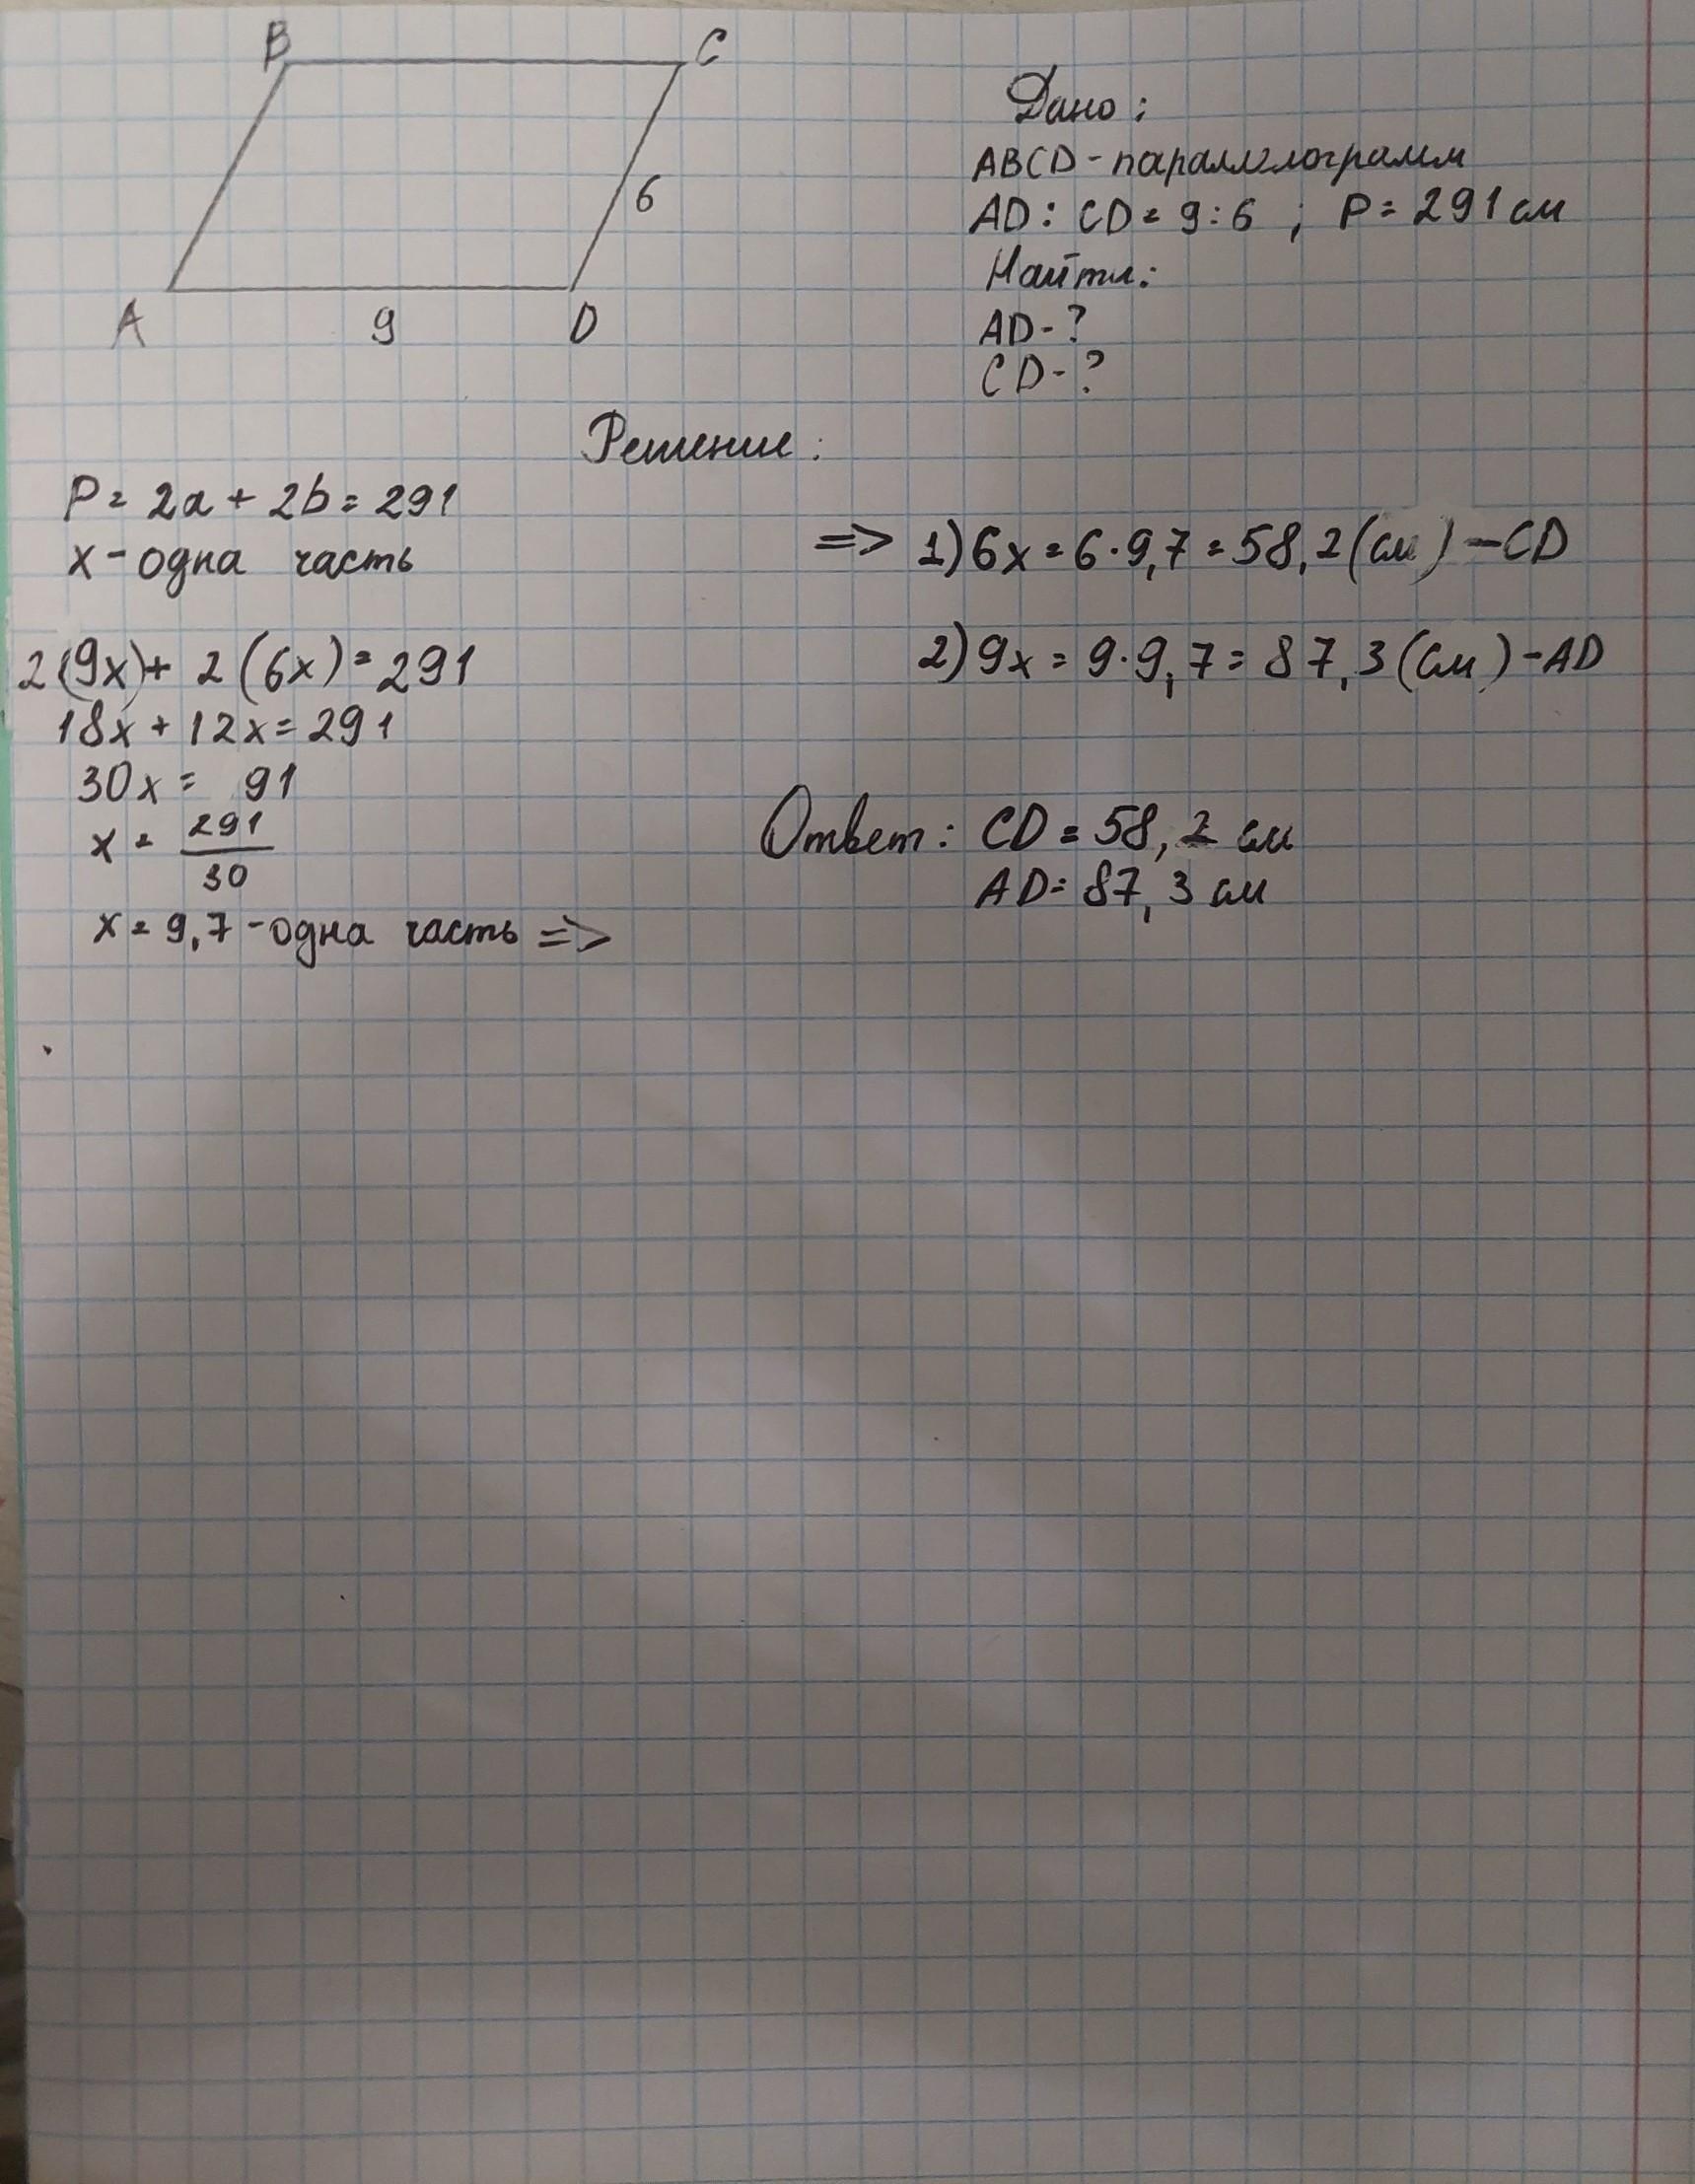 B
C
6
A
9
D
Дано:
ABCD - параллелограмм
AD : CD = 9:6 ; P = 291 см
Найти:
AD - ?
CD - ?
Решение:
P = 2a + 2b = 291
x - одна часть
2(9x) + 2(6x) = 291
18x + 12x = 291
30x = 91
x = 291/30
x = 9,7 - одна часть =>
=> 1) 6x = 6·9,7 = 58,2 (см) - CD
2) 9x = 9·9,7 = 87,3 (см) - AD
Ответ: CD = 58,2 см
AD = 87,3 см